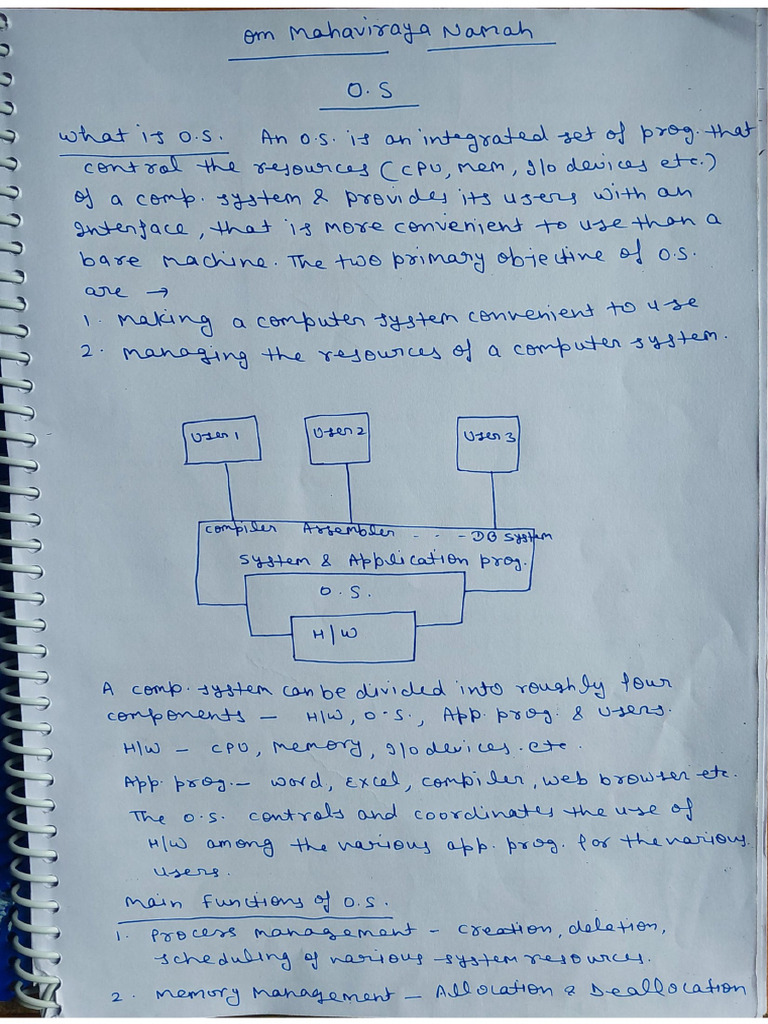 Om Mahaviraya Namah
O.S
What is O.S. An O.S. is an integrated set of prog. that
control the resources (CPU, Mem, I/o devices etc.)
of a comp. system & provides its users with an
Interface, that is more convenient to use than a
bare machine. The two primary objective of O.S.
are →
1. Making a computer system convenient to use
2. Managing the resources of a computer system.
User 1 User 2 User 3
Compiler Assembler - - - DB System
System & Application prog.
O.S.
H/W
A comp. system can be divided into roughly four
components - H/W, O.S., App. prog. & Users.
H/W - CPU, Memory, I/o devices. etc.
App. prog. - Word, Excel, compiler, web browser etc.
The O.S. controls and coordinates the use of
H/W among the various app. prog. for the various
users.
Main Functions of O.S.
1. Process management - Creation, deletion,
scheduling of various system resources.
2. Memory Management - Allocation & Deallocation